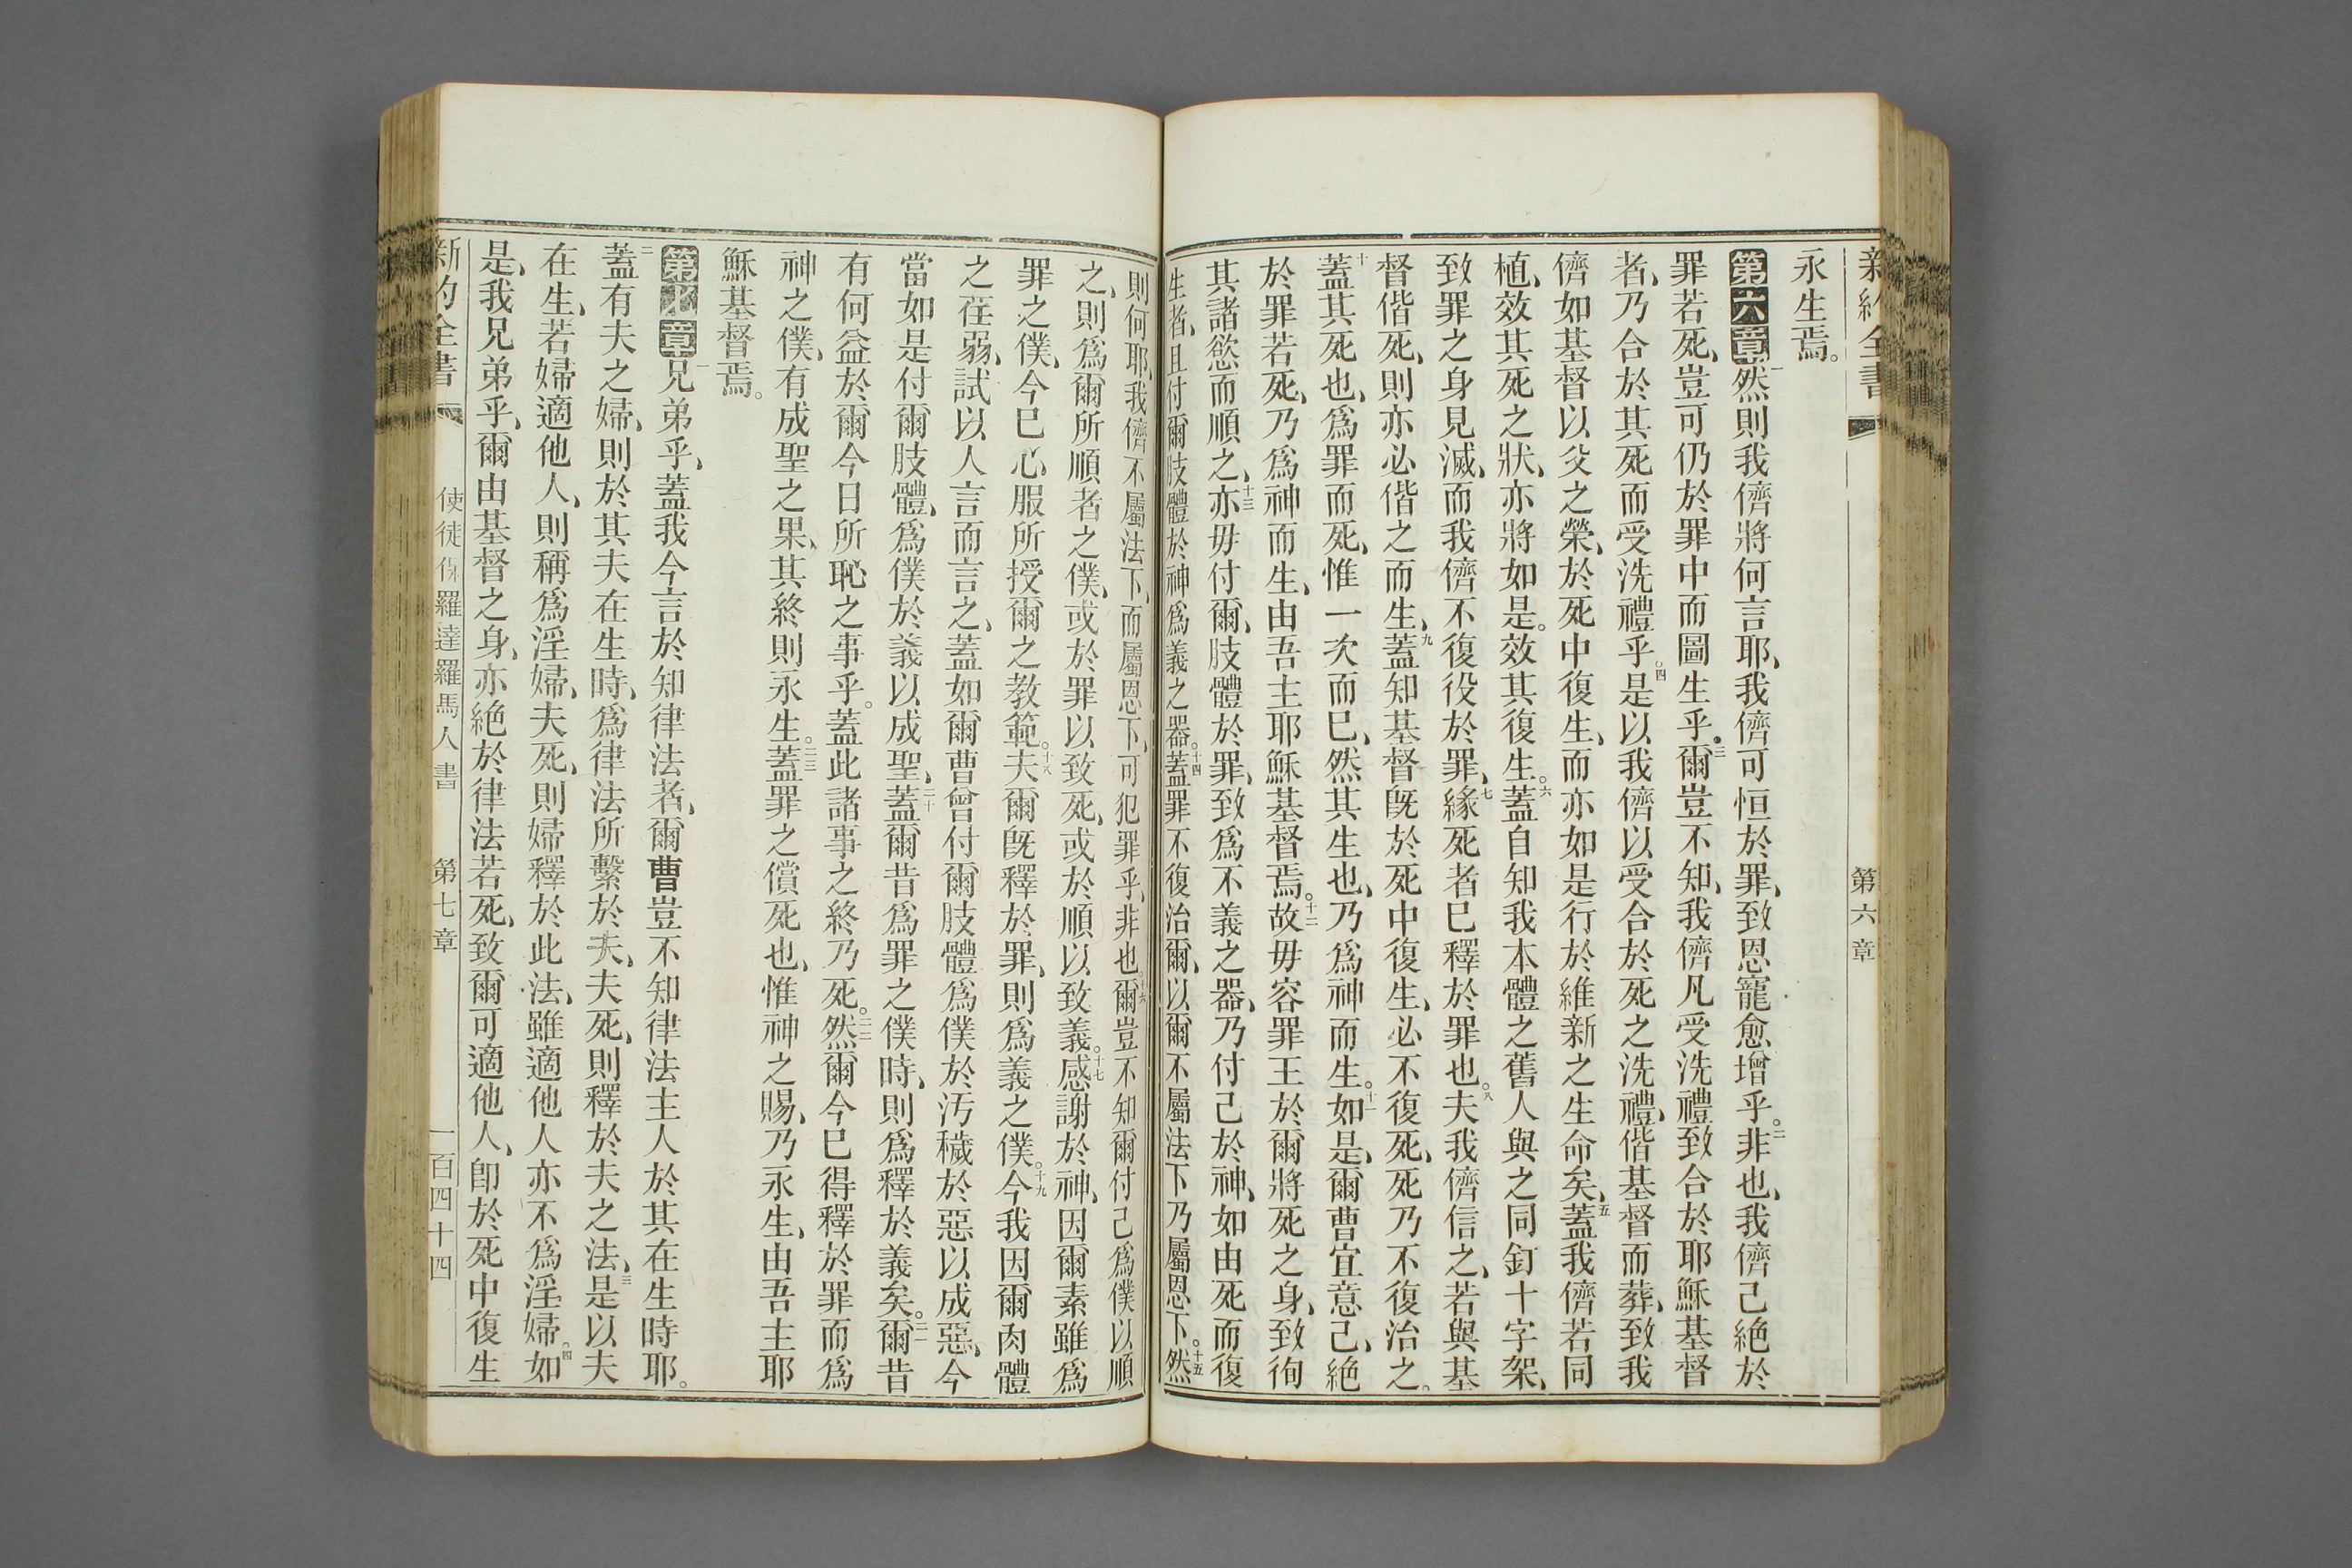 新約全書
第六章
永生焉。
第六章一然則我儕將何言耶、我儕可恒於罪、致恩寵愈增乎。二非也、我儕己絶於
罪若死、豈可仍於罪中而圖生乎。三爾豈不知、我儕凡受洗禮致合於耶穌基督
者、乃合於其死而受洗禮乎。四是以我儕以受合於死之洗禮、偕基督而葬、致我
儕如基督以父之榮、於死中復生、而亦如是行於維新之生命矣、五蓋我儕若同
植、效其死之狀、亦將如是。效其復生。六蓋自知我本體之舊人與之同釘十字架、
致罪之身見滅、而我儕不復役於罪、七緣死者已釋於罪也。八夫我儕信之、若與基
督偕死、則亦必偕之而生、九蓋知基督旣於死中復生、必不復死、死乃不復治之。
十蓋其死也、爲罪而死、惟一次而已、然其生也、乃爲神而生。十一如是、爾曹宜意己、絶
於罪若死、乃爲神而生、由吾主耶穌基督焉。十二故毋容罪王於爾將死之身、致徇
其諸慾而順之、十三亦毋付爾、肢體於罪、致爲不義之器、乃付己於神、如由死而復
生者、且付爾肢體於神爲義之器。十四蓋罪不復治爾、以爾不屬法下乃屬恩下。十五然
則何耶、我儕不屬法下、而屬恩下、可犯罪乎、非也。十六爾豈不知爾付己爲僕以順
之、則爲爾所順者之僕、或於罪以致死、或於順以致義。十七感謝於神、因爾素雖爲
罪之僕、今已心服所授爾之教範。十八夫爾旣釋於罪、則爲義之僕。十九今我因爾肉體
之荏弱、試以人言而言之、蓋如爾曹曾付爾肢體爲僕於汚穢於惡以成惡、今
當如是付爾肢體、爲僕於義以成聖、二十蓋爾昔爲罪之僕時、則爲釋於義矣。二一爾昔
有何益於爾今日所恥之事乎。蓋此諸事之終乃死。二二然爾今已得釋於罪而爲
神之僕、有成聖之果、其終則永生。二三蓋罪之償死也、惟神之賜、乃永生、由吾主耶
穌基督焉。
第七章一兄弟乎、蓋我今言於知律法者、爾曹豈不知律法主人於其在生時耶。
二蓋有夫之婦、則於其夫在生時、爲律法所繫於夫、夫死、則釋於夫之法、三是以夫
在生、若婦適他人、則稱爲淫婦、夫死、則婦釋於此法、雖適他人亦不爲淫婦。四如
是、我兄弟乎、爾由基督之身、亦絶於律法若死、致爾可適他人、卽於死中復生
新約全書
使徒保羅達羅馬人書
第七章
一百四十四